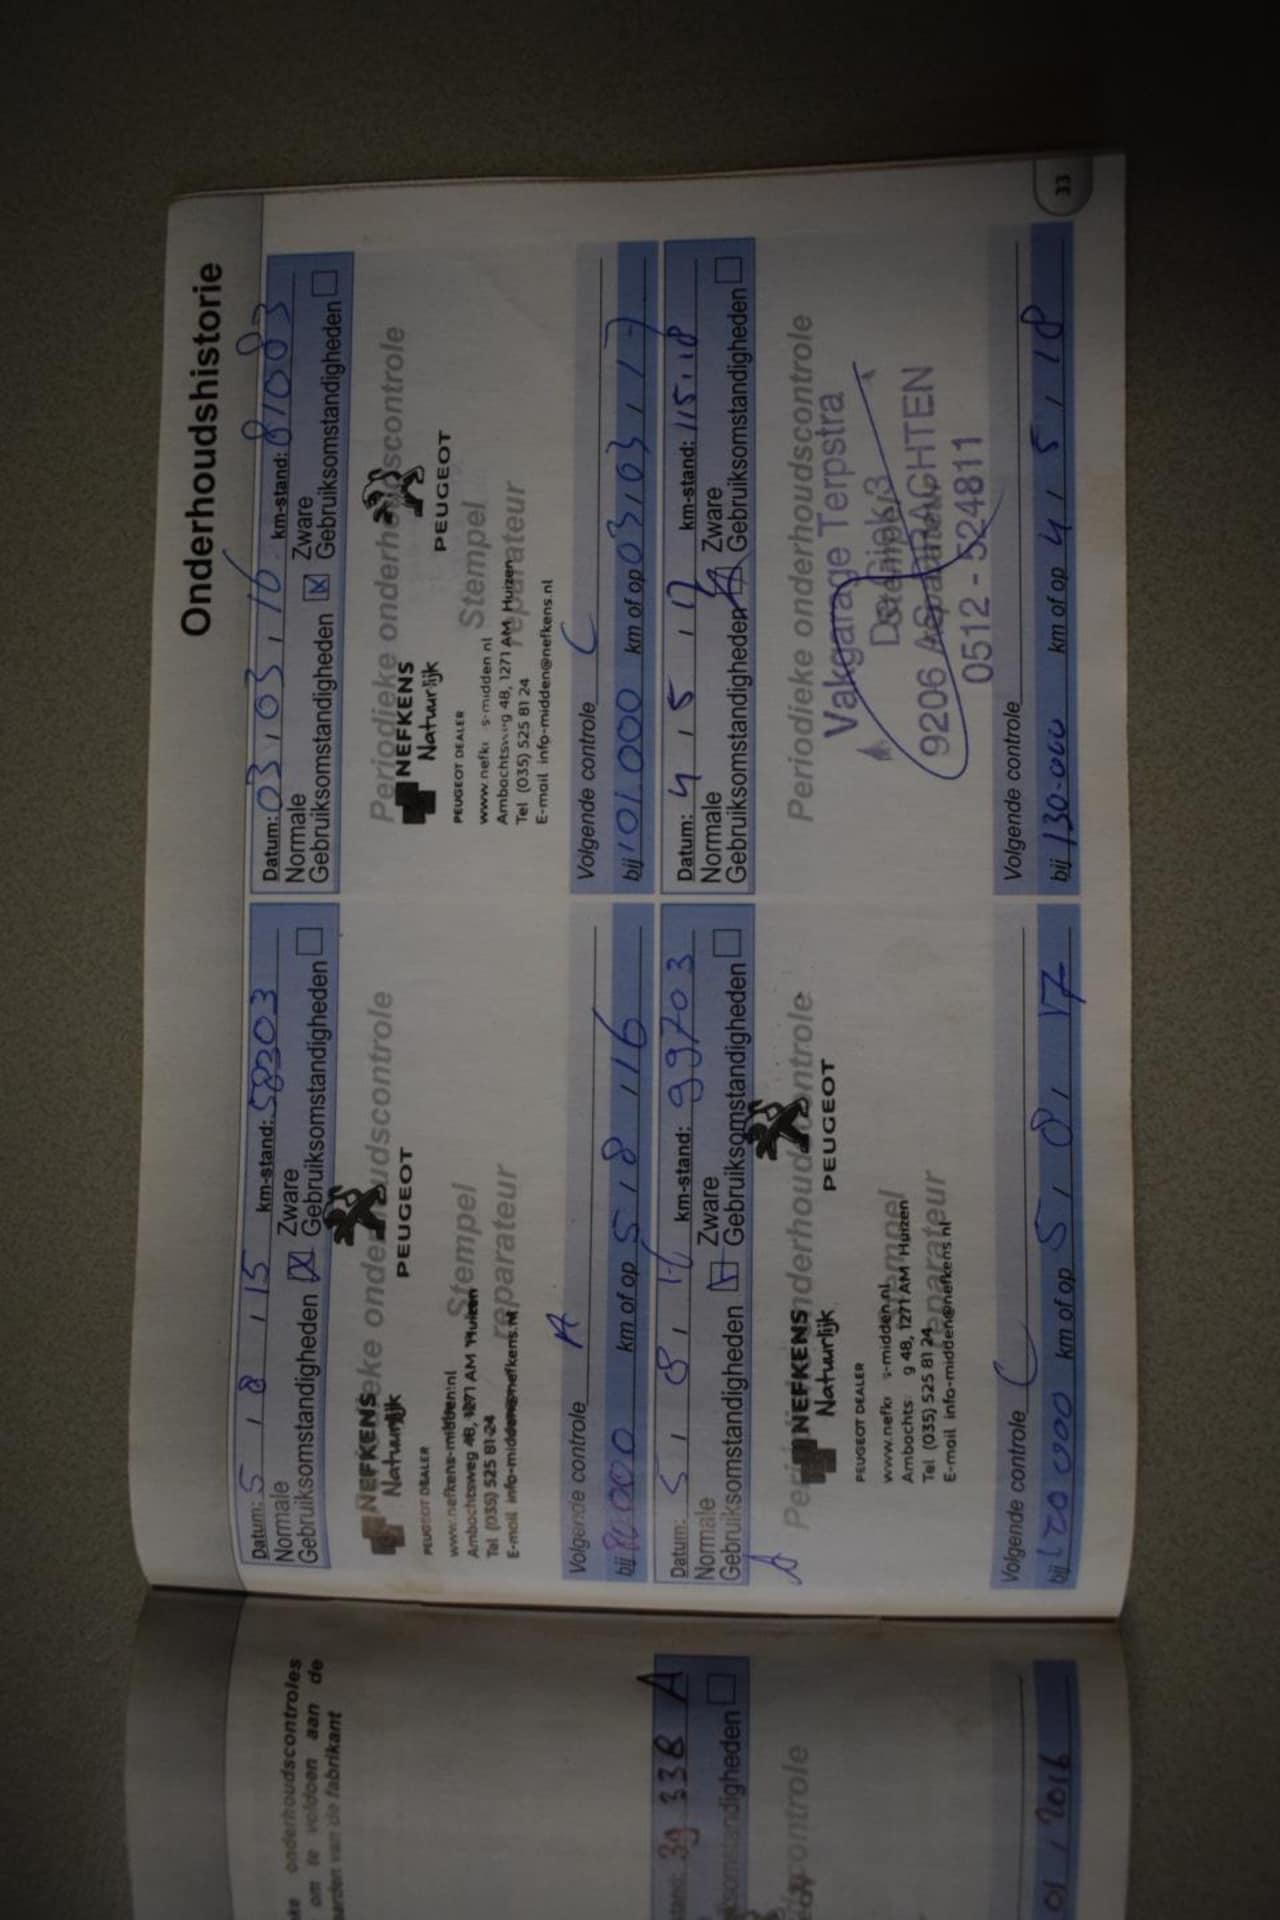 ke onderhoudscontroles
om te voldoen aan de
aarden van de fabrikant
stand: 39 338 A
somstandigheden
controle
01 / 2016
Onderhoudshistorie
Datum: 5 / 8 / 15 km-stand: 58203
Normale Zware
Gebruiksomstandigheden Gebruiksomstandigheden
Periodieke onderhoudscontrole
NEFKENS
Natuurlijk
PEUGEOT
PEUGEOT DEALER
Stempel
reparateur
www.nefkens-midden.nl
Ambachtsweg 48, 1271 AM Huizen
Tel (035) 525 81 24
E-mail info-midden@nefkens.nl
Volgende controle A
bij 80000 km of op 5 / 8 / 16
Datum: 03 / 03 / 16 km-stand: 81083
Normale Zware
Gebruiksomstandigheden Gebruiksomstandigheden
Periodieke onderhoudscontrole
NEFKENS
Natuurlijk
PEUGEOT
PEUGEOT DEALER
Stempel
reparateur
www.nefk s-midden.nl
Ambachtsweg 48, 1271 AM Huizen
Tel (035) 525 81 24
E-mail info-midden@nefkens.nl
Volgende controle C
bij 101.000 km of op 03 / 03 / 17
Datum: 5 / 8 / 16 km-stand: 99703
Normale Zware
Gebruiksomstandigheden Gebruiksomstandigheden
A
Periodieke onderhoudscontrole
NEFKENS
Natuurlijk
PEUGEOT
PEUGEOT DEALER
Stempel
reparateur
www.nefk s-midden.nl
Ambachts g 48, 1271 AM Huizen
Tel (035) 525 81 24
E-mail info-midden@nefkens.nl
Volgende controle C
bij 120 000 km of op 5 / 8 / 17
Datum: 4 / 5 / 17 km-stand: 115.118
Normale Zware
Gebruiksomstandigheden Gebruiksomstandigheden
Periodieke onderhoudscontrole
Vakgarage Terpstra
Stempel
reparateur
9206 A DRACHTEN
0512 - 524811
Volgende controle
bij 130.000 km of op 4 / 5 / 18
33